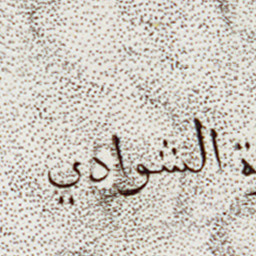 ة الشوادي